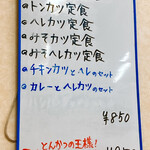 トンカツ定食
ヘレカツ定食
みそカツ定食
みそヘレカツ定食
チキンカツとヘレのセット
カレーとヘレカツのセット
¥850
とんかつの王様!